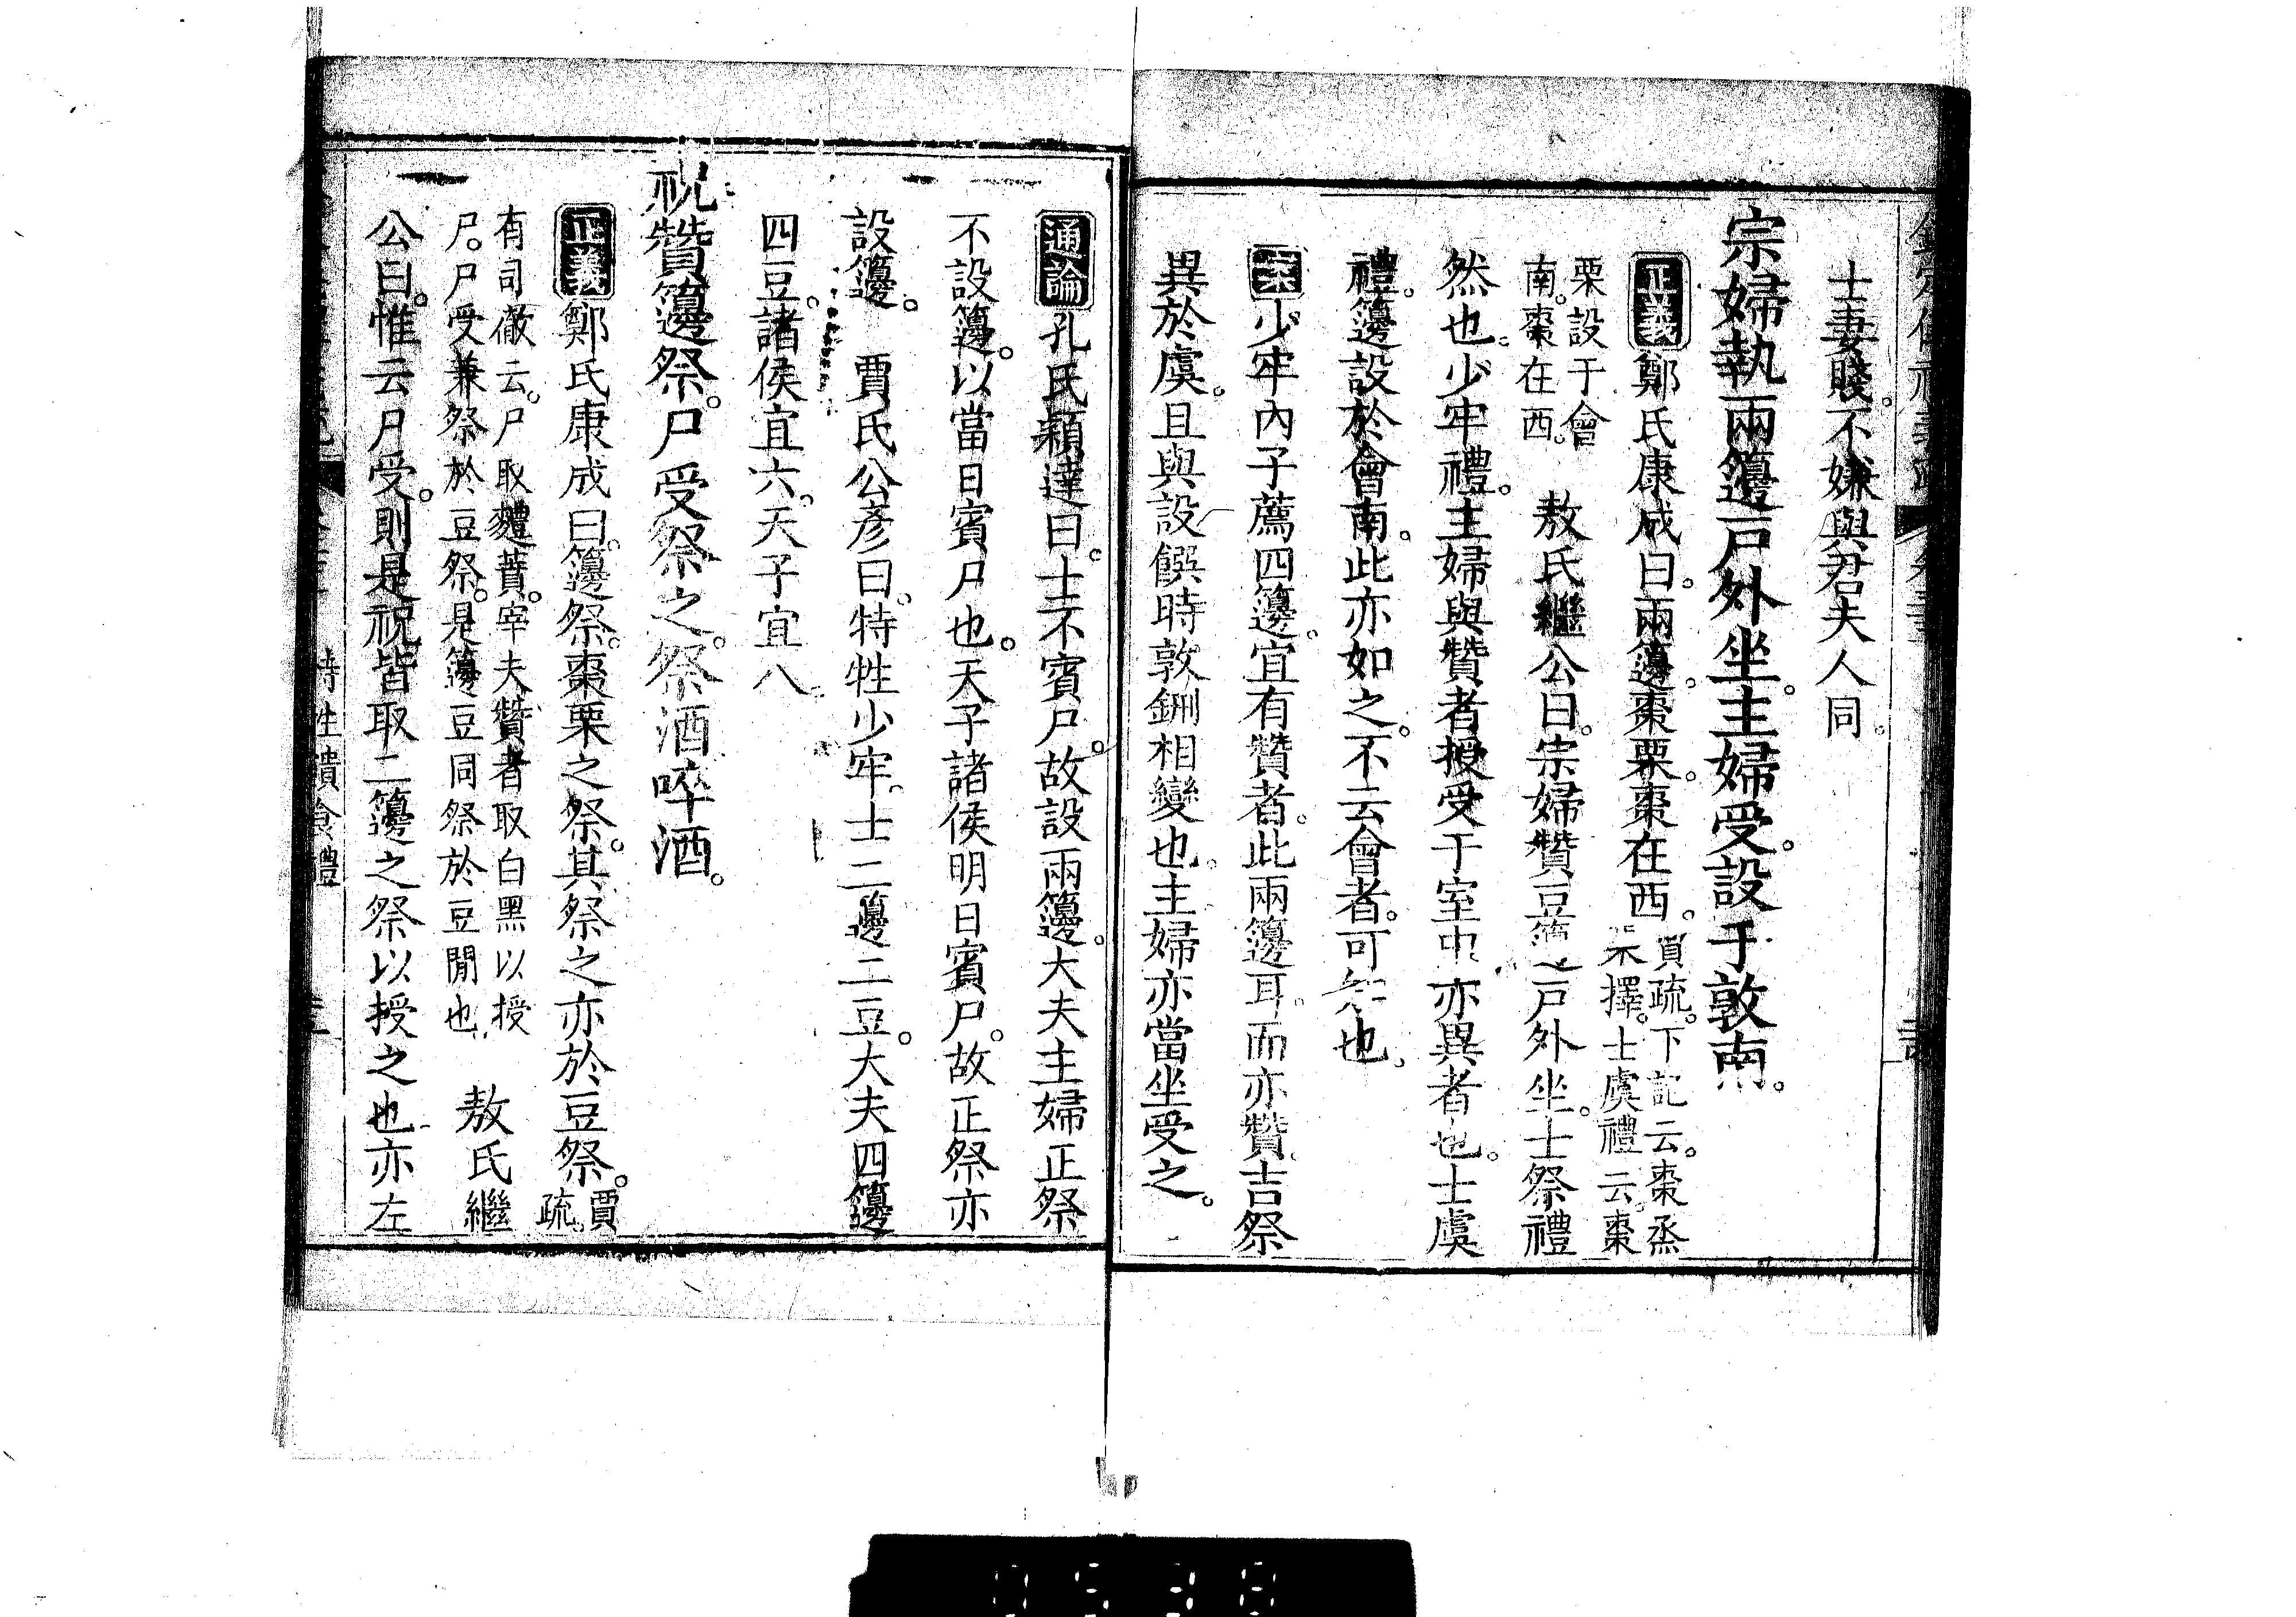 士妻賤。不嫌與君夫人同。
宗婦執兩籩戸外坐。主婦受。設于敦南。
正義鄭氏康成曰。兩籩。棗栗。棗在西。賈疏。下記云。棗烝
栗擇。士虞禮云。棗
栗設于會
南。棗在西。敖氏繼公曰。宗婦贊豆籩戸外坐。士祭禮
然也。少牢禮。主婦與贊者授受于室中。亦異者也。士虞
禮。籩設於會南。此亦如之。不云會者。可知也。
案少牢內子薦四籩。宜有贊者。此兩籩耳。而亦贊。吉祭
異於虞。且與設饌時敦鉶相變也。主婦亦當坐受之。
通論孔氏穎達曰。士不賓尸。故設兩籩。大夫主婦正祭
不設籩。以當日賓尸也。天子諸侯明日賓尸。故正祭亦
設籩。賈氏公彥曰。特牲少牢。士二籩二豆。大夫四籩
四豆。諸侯宜六。天子宜八。
祝贊籩祭。尸受祭之。祭酒啐酒。
正義鄭氏康成曰。籩祭。棗栗之祭。其祭之亦於豆祭。賈
疏。
有司徹云。尸取麷蕡。宰夫贊者取白黑以授
尸。尸受兼祭於豆祭。是籩豆同祭於豆閒也。敖氏繼
公曰。惟云尸受。則是祝皆取二籩之祭以授之也。亦左
特牲饋食禮